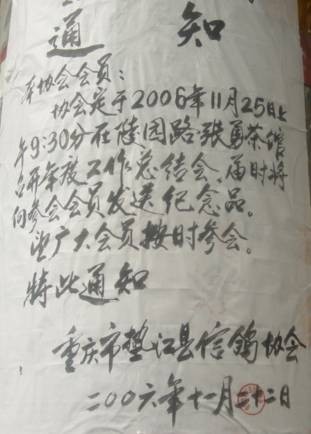 通知
本协会会员：
协会定于2006年11月25日上
午9:30分在陵园路张勇茶馆
召开年度工作总结会，届时将
向参会会员发送纪念品。
望广大会员按时参会。
特此通知
重庆市垫江县信鸽协会
二00六年十一月二十二日